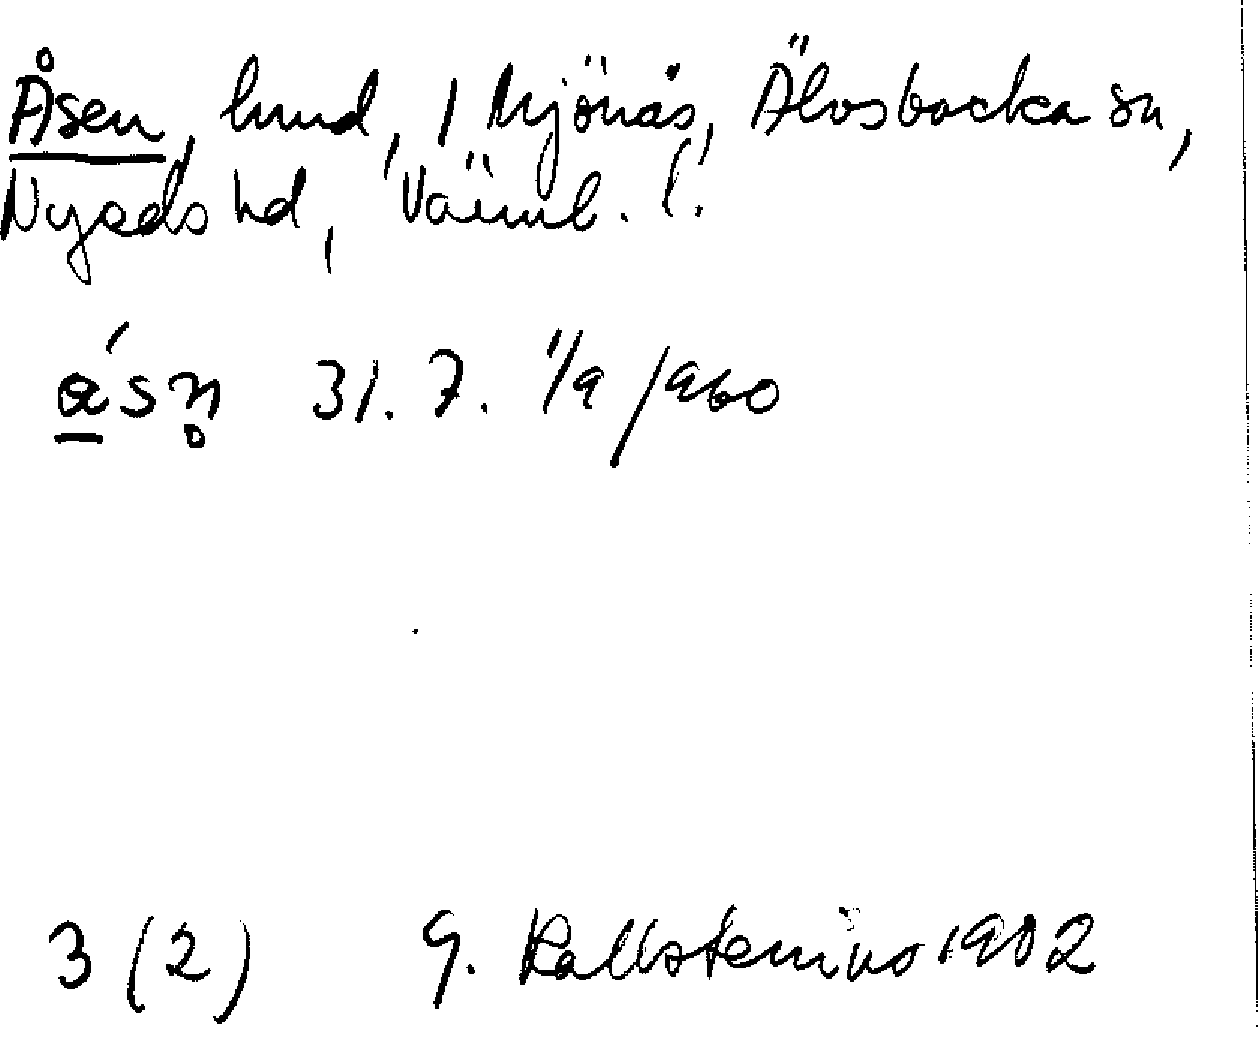 Åsen, hmd, i Mjönäs, Älvsbacka sn,
Nyeds hd, Värml. l.
a̲´sn̥ 31.7. 1/9 1960
3 (2) G. Kallstenius 1902